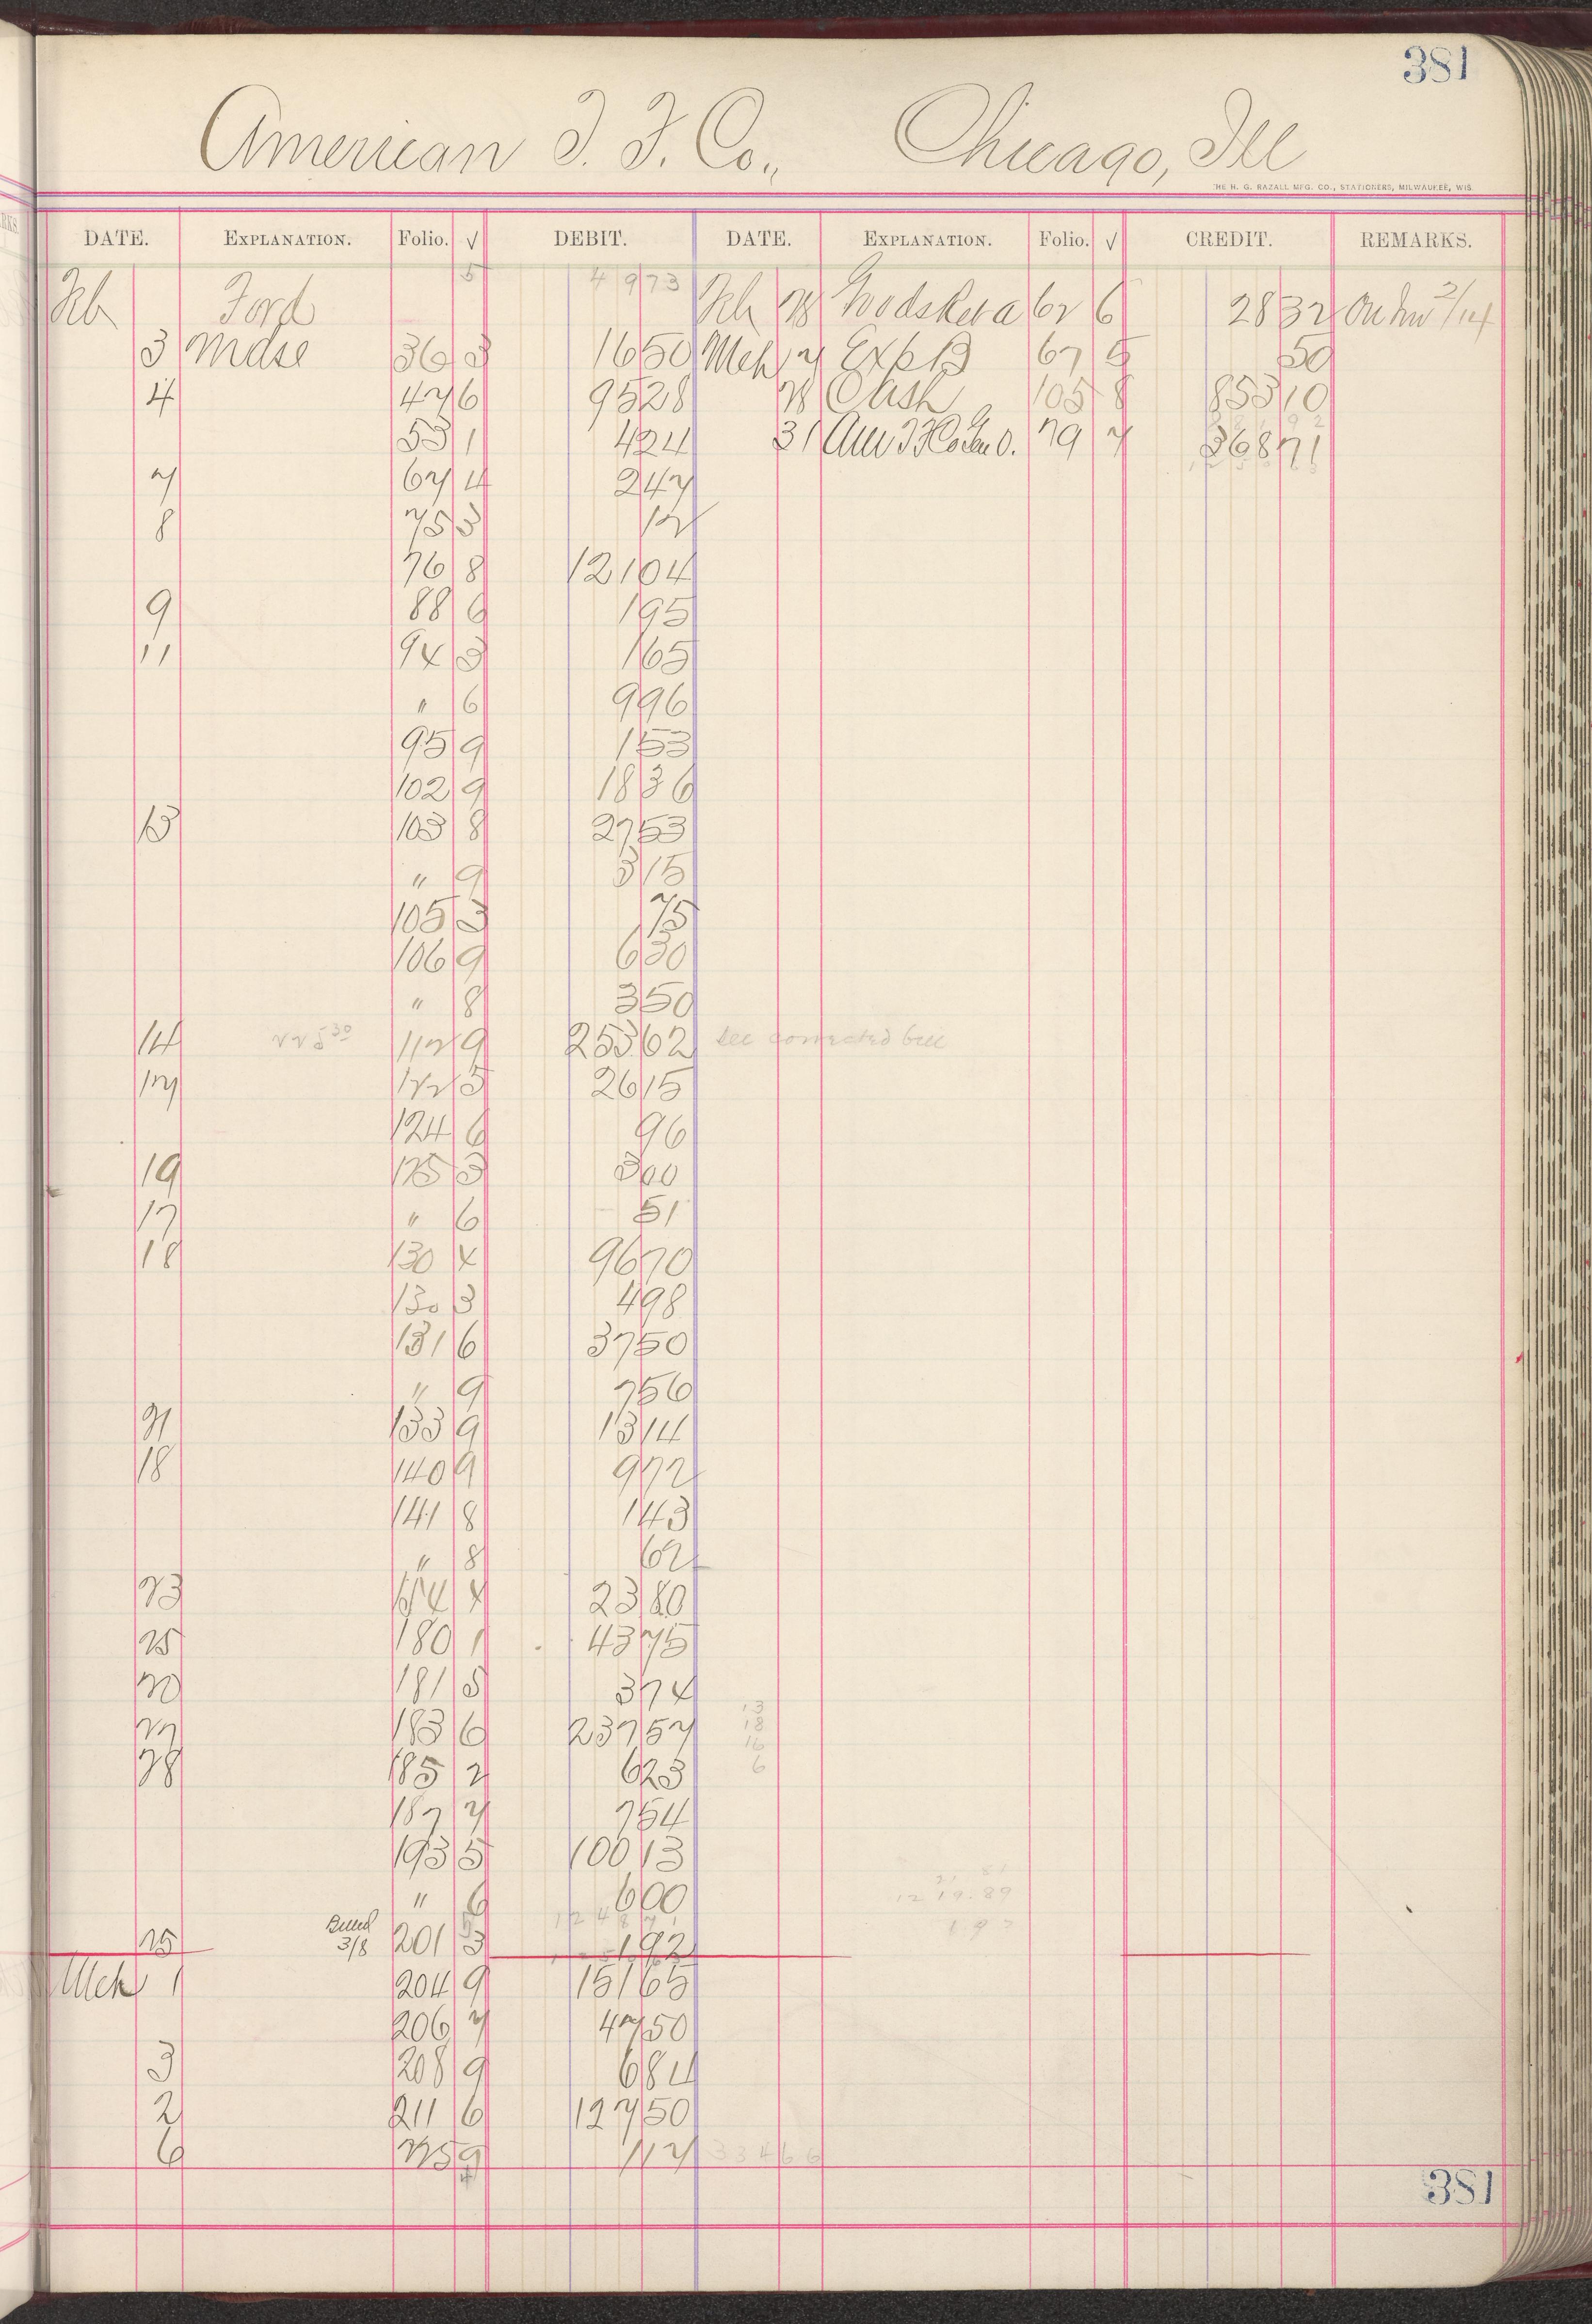 381
American T. F. Co., Chicago, Ill
THE H. G. RAZALL MFG. CO., STATIONERS, MILWAUKEE, WIS.
DATE. EXPLANATION. Folio. √ DEBIT. DATE. EXPLANATION. Folio. √ CREDIT. REMARKS.
5 49 73
Feb Ford Feb 28 62 6 28 32
3 Mdse 36 3 16 50 Mch 7 67 5 50
4 47 6 95 28 28 Cash 105 8 853 10
53 1 4 24 31 79 7 368 71
7 67 4 2 47
8 75 3 12
76 8 121 04
9 88 6 1 95
11 94 3 1 65
" 6 9 96
95 9 1 53
102 9 18 36
13 103 8 27 53
" 9 3 15
105 3 75
106 9 6 30
" 8 3 50
14 225 30 112 9 253 62 See corrected bill
17 122 5 26 15
124 6 96
19 125 3 3 00
17 " 6 51
18 130 4 96 70
130 3 4 98
131 6 37 50
" 9 7 56
21 133 9 13 14
18 140 9 9 72
141 8 1 43
" 8 62
23 4 23 80
25 180 1 43 75
20 181 5 3 74
13
27 183 6 237 57 18
16
28 185 2 6 23 6
187 7 7 54
193 5 100 13
" 6 6 00 12 19.89
Billed
25 3/8 201 3 1 92
Mch 1 204 9 151 65
206 7 47 50
3 208 9 6 84
2 211 6 127 50
6 225 9 1 17 334 66
381